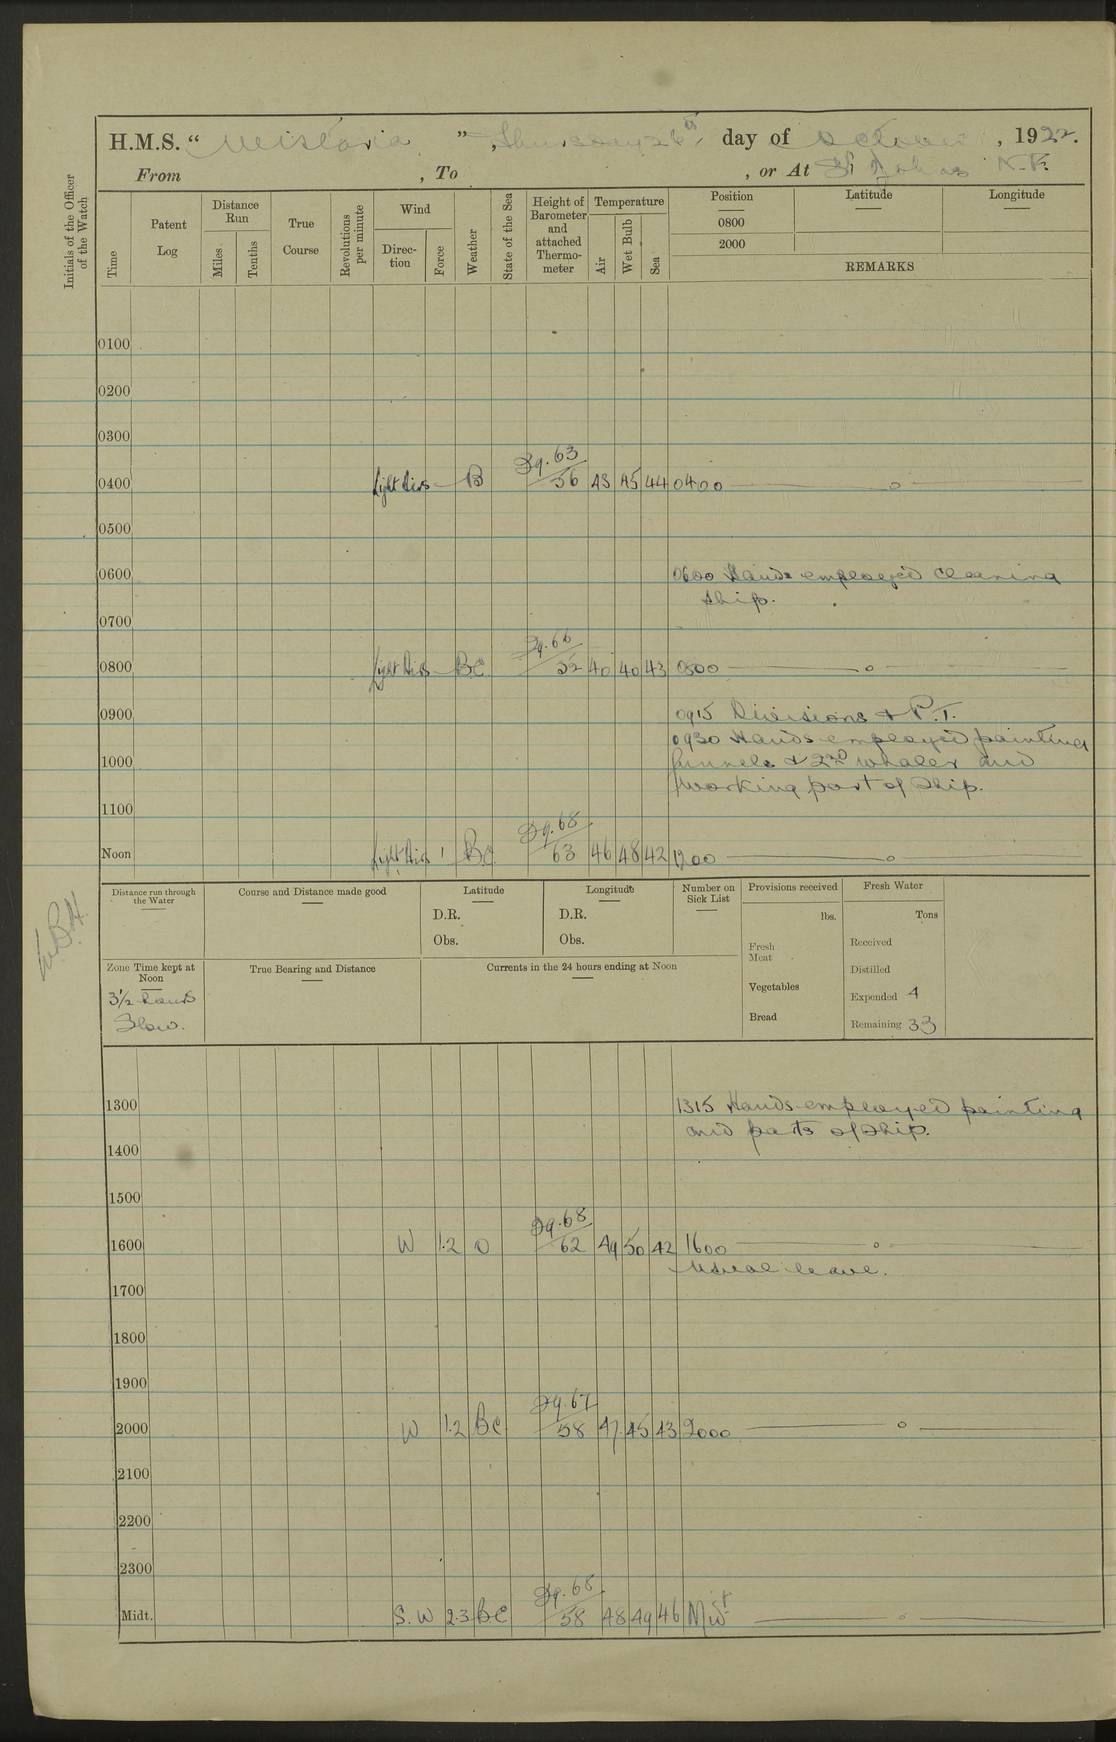 H.M.S. “ Wistaria ”, Thursday 26th, day of October, 1922.
From , To , or At St Johns N.F.
Initials of the Officer of the Watch
Time
Patent Log
Distance Run
Miles
Tenths
True Course
Revolutions per minute
Wind
Direction
Force
Weather
State of the Sea
Height of Barometer and attached Thermometer
Temperature
Air
Wet Bulb
Sea
Position
Latitude
Longitude
0800
2000
REMARKS
0100
0200
0300
0400 Light Airs B 29.63 / 56 43 45 44 0400 —o—
0500
0600 0600 Hands employed cleaning
ship.
0700
0800 Light Airs BC 29.66 / 52 40 40 43 0800 —o—
0900 0915 Divisions & P.T.
0930 Hands employed painting
1000 funnels & 2nd whaler and
working part of ship.
1100
Noon Light Airs 1 BC 29.68 / 63 46 48 42 1200 —o—
W.B.H.
Distance run through the Water
Course and Distance made good
Latitude
D.R.
Obs.
Longitude
D.R.
Obs.
Number on Sick List
Provisions received
lbs.
Fresh Meat
Vegetables
Bread
Fresh Water
Tons
Received
Distilled
Expended 4
Remaining 33
Zone Time kept at Noon
3½ hours
Slow.
True Bearing and Distance
Currents in the 24 hours ending at Noon
1300 1315 Hands employed painting
and parts of ship.
1400
1500
1600 W 1.2 O 29.68 / 62 49 50 42 1600 —o—
Usual leave.
1700
1800
1900
2000 W 1.2 BC 29.67 / 58 47 45 43 2000 —o—
2100
2200
2300
Midt. S.W 2.3 BC 29.68 / 58 48 49 46 Midt —o—